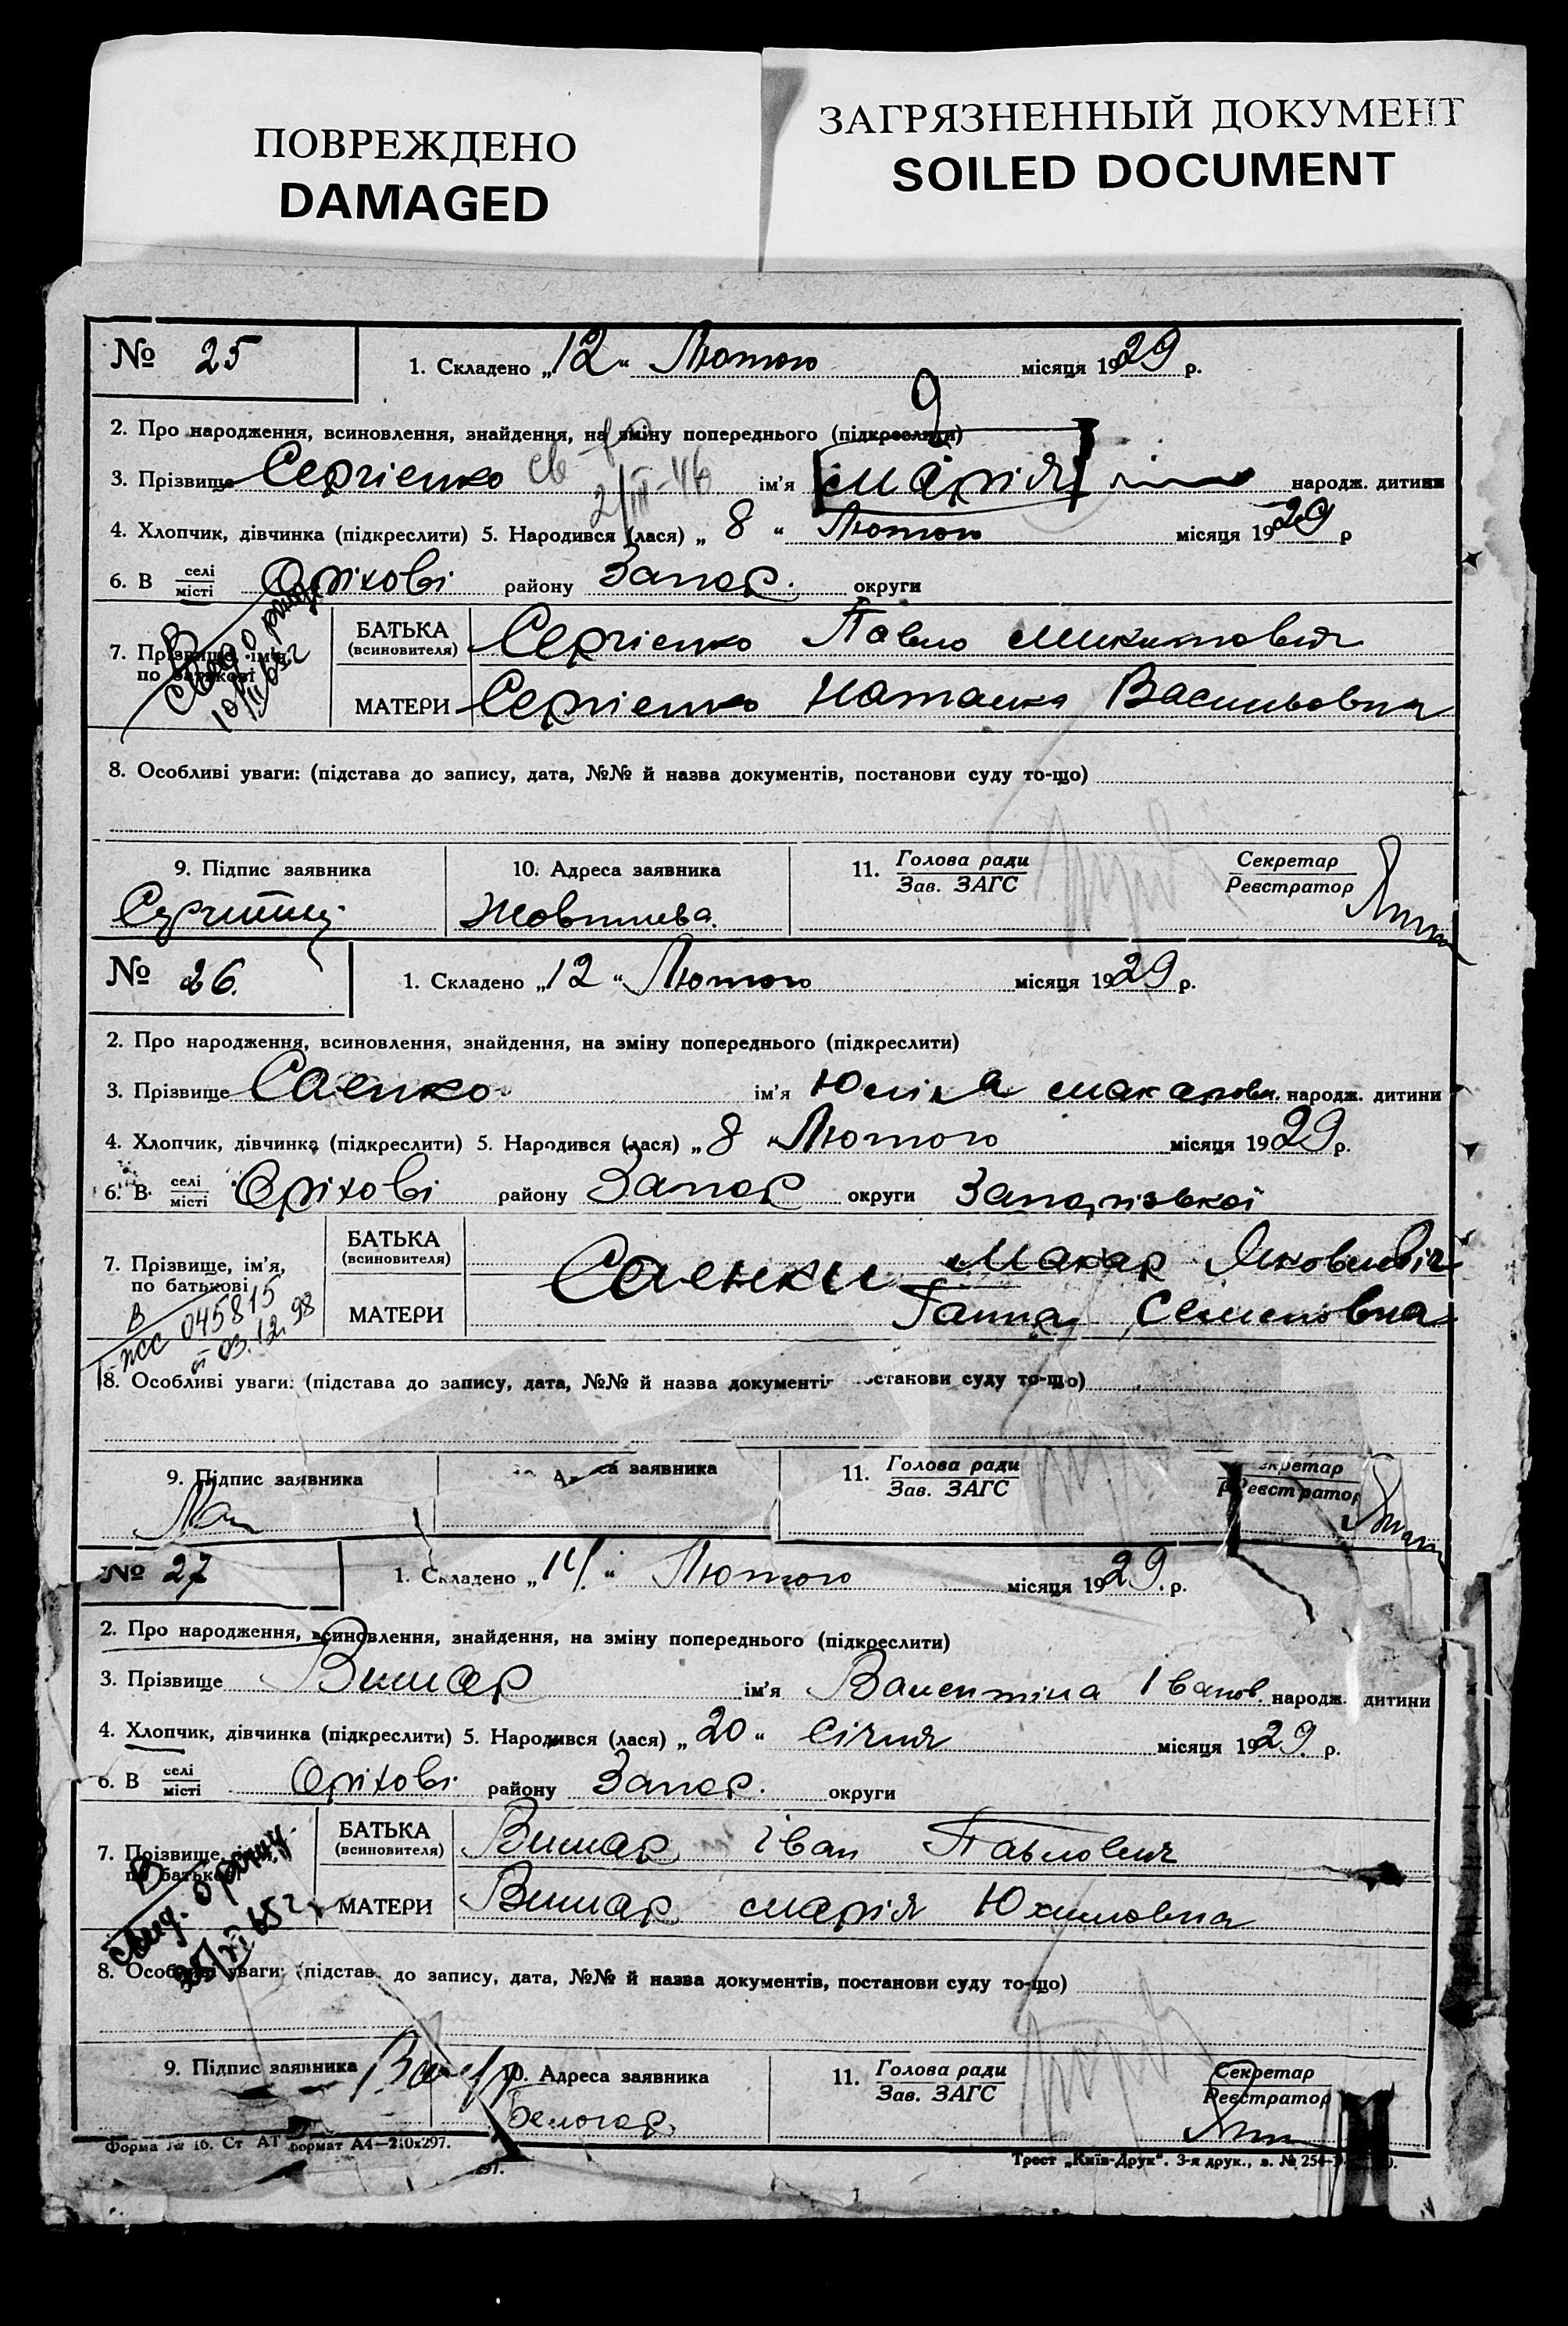 ПОВРЕЖДЕНО
DAMAGED
ЗАГРЯЗНЕННЫЙ ДОКУМЕНТ
SOILED DOCUMENT
№ 25
1. Складено „12“ Лютого місяця 1929 р.
2. Про народження, всиновлення, знайдення, на зміну попереднього (підкреслити)
3. Прізвище Сергієнко св 2/III-46 ім'я Марія народж. дитини
4. Хлопчик, дівчинка (підкреслити) 5. Народився (лася) „8“ Лютого місяця 1929 р
6. В селі місті Оріхові району Запор. округи
7. Прізвище, ім'я, по батькові
БАТЬКА (всиновителя) Сергієнко Павло Микитович
МАТЕРИ Сергієнко Наталка Васильовна
8. Особливі уваги: (підстава до запису, дата, №№ й назва документів, постанови суду то-що)
9. Підпис заявника
10. Адреса заявника
11. Голова ради Зав. ЗАГС
Секретар Реєстратор
№ 26.
1. Складено „12“ Лютого місяця 1929 р.
2. Про народження, всиновлення, знайдення, на зміну попереднього (підкреслити)
3. Прізвище Саенко ім'я Юліна Макаровн. народж. дитини
4. Хлопчик, дівчинка (підкреслити) 5. Народився (лася) „8“ Лютого місяця 1929 р.
6. В селі місті Оріхові району Запор округи Запорізької
7. Прізвище, ім'я, по батькові
БАТЬКА (всиновителя) Саенки Макар Яковлевіч
МАТЕРИ Ганна Семеновна
В
ЖС 045815
от 03.12.93
8. Особливі уваги: (підстава до запису, дата, №№ й назва документів останови суду то-що)
9. Підпис заявника
заявника
11. Голова ради Зав. ЗАГС
Секретар Реєстратор
№ 27
1. Складено „14“ Лютого місяця 1929. р.
2. Про народження, всиновлення, знайдення, на зміну попереднього (підкреслити)
3. Прізвище Вишар ім'я Валентіна Іванов. народж. дитини
4. Хлопчик, дівчинка (підкреслити) 5. Народився (лася) „20“ Січня місяця 1929. р.
6. В селі місті Оріхові району Запор. округи
7. Прізвище, ім'я, по батькові
БАТЬКА (всиновителя) Вишар Іван Павлович
МАТЕРИ Вишар Марія Юхимовна
8. Особливі уваги: (підстав. до запису, дата, №№ й назва документів, постанови суду то-що)
9. Підпис заявника
10. Адреса заявника
11. Голова ради Зав. ЗАГС
Секретар Реєстратор
Форма № 16. Ст АТ формат А4—210х297.
Трест „Київ-Друк“. 3-я друк., з. № 254